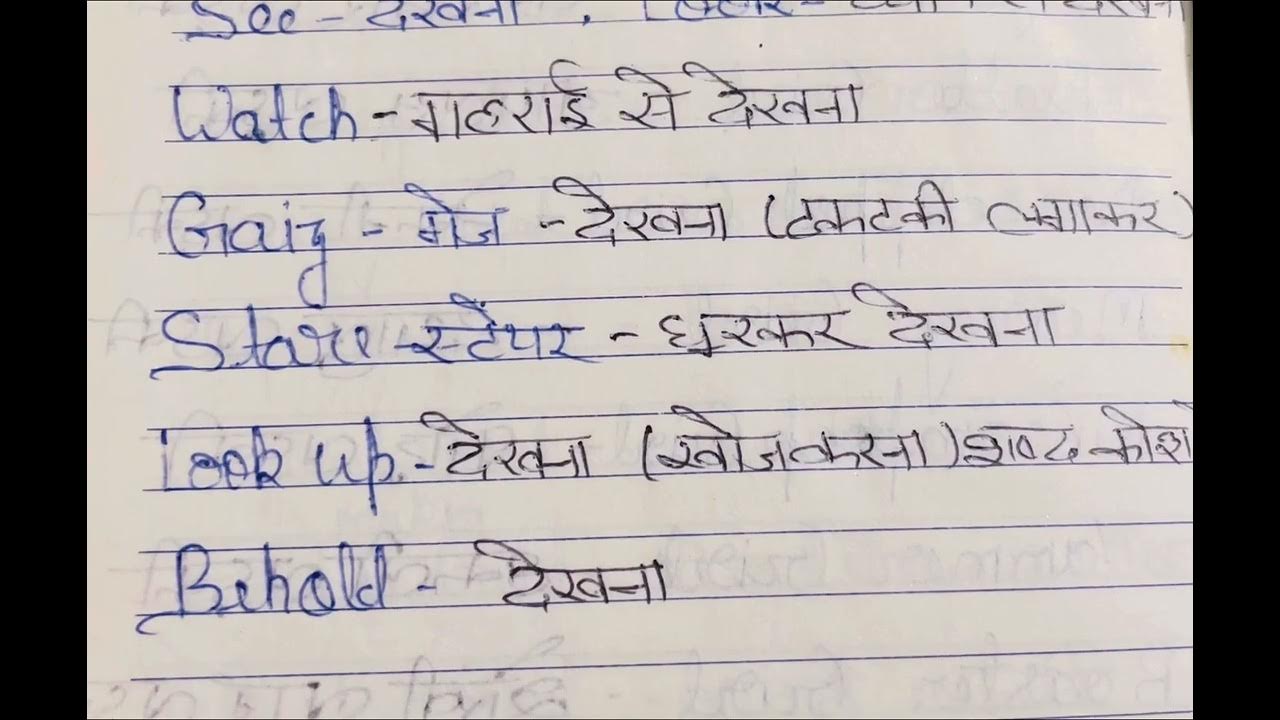 See - देखना,
Watch - गहराई से देखना
Gaiz - गेज - देखना (टकटकी लगाकर)
Stare - स्टेयर - घुरकर देखना
Look up. - देखना (खोजकरना) शब्द कोश
Behold - देखना